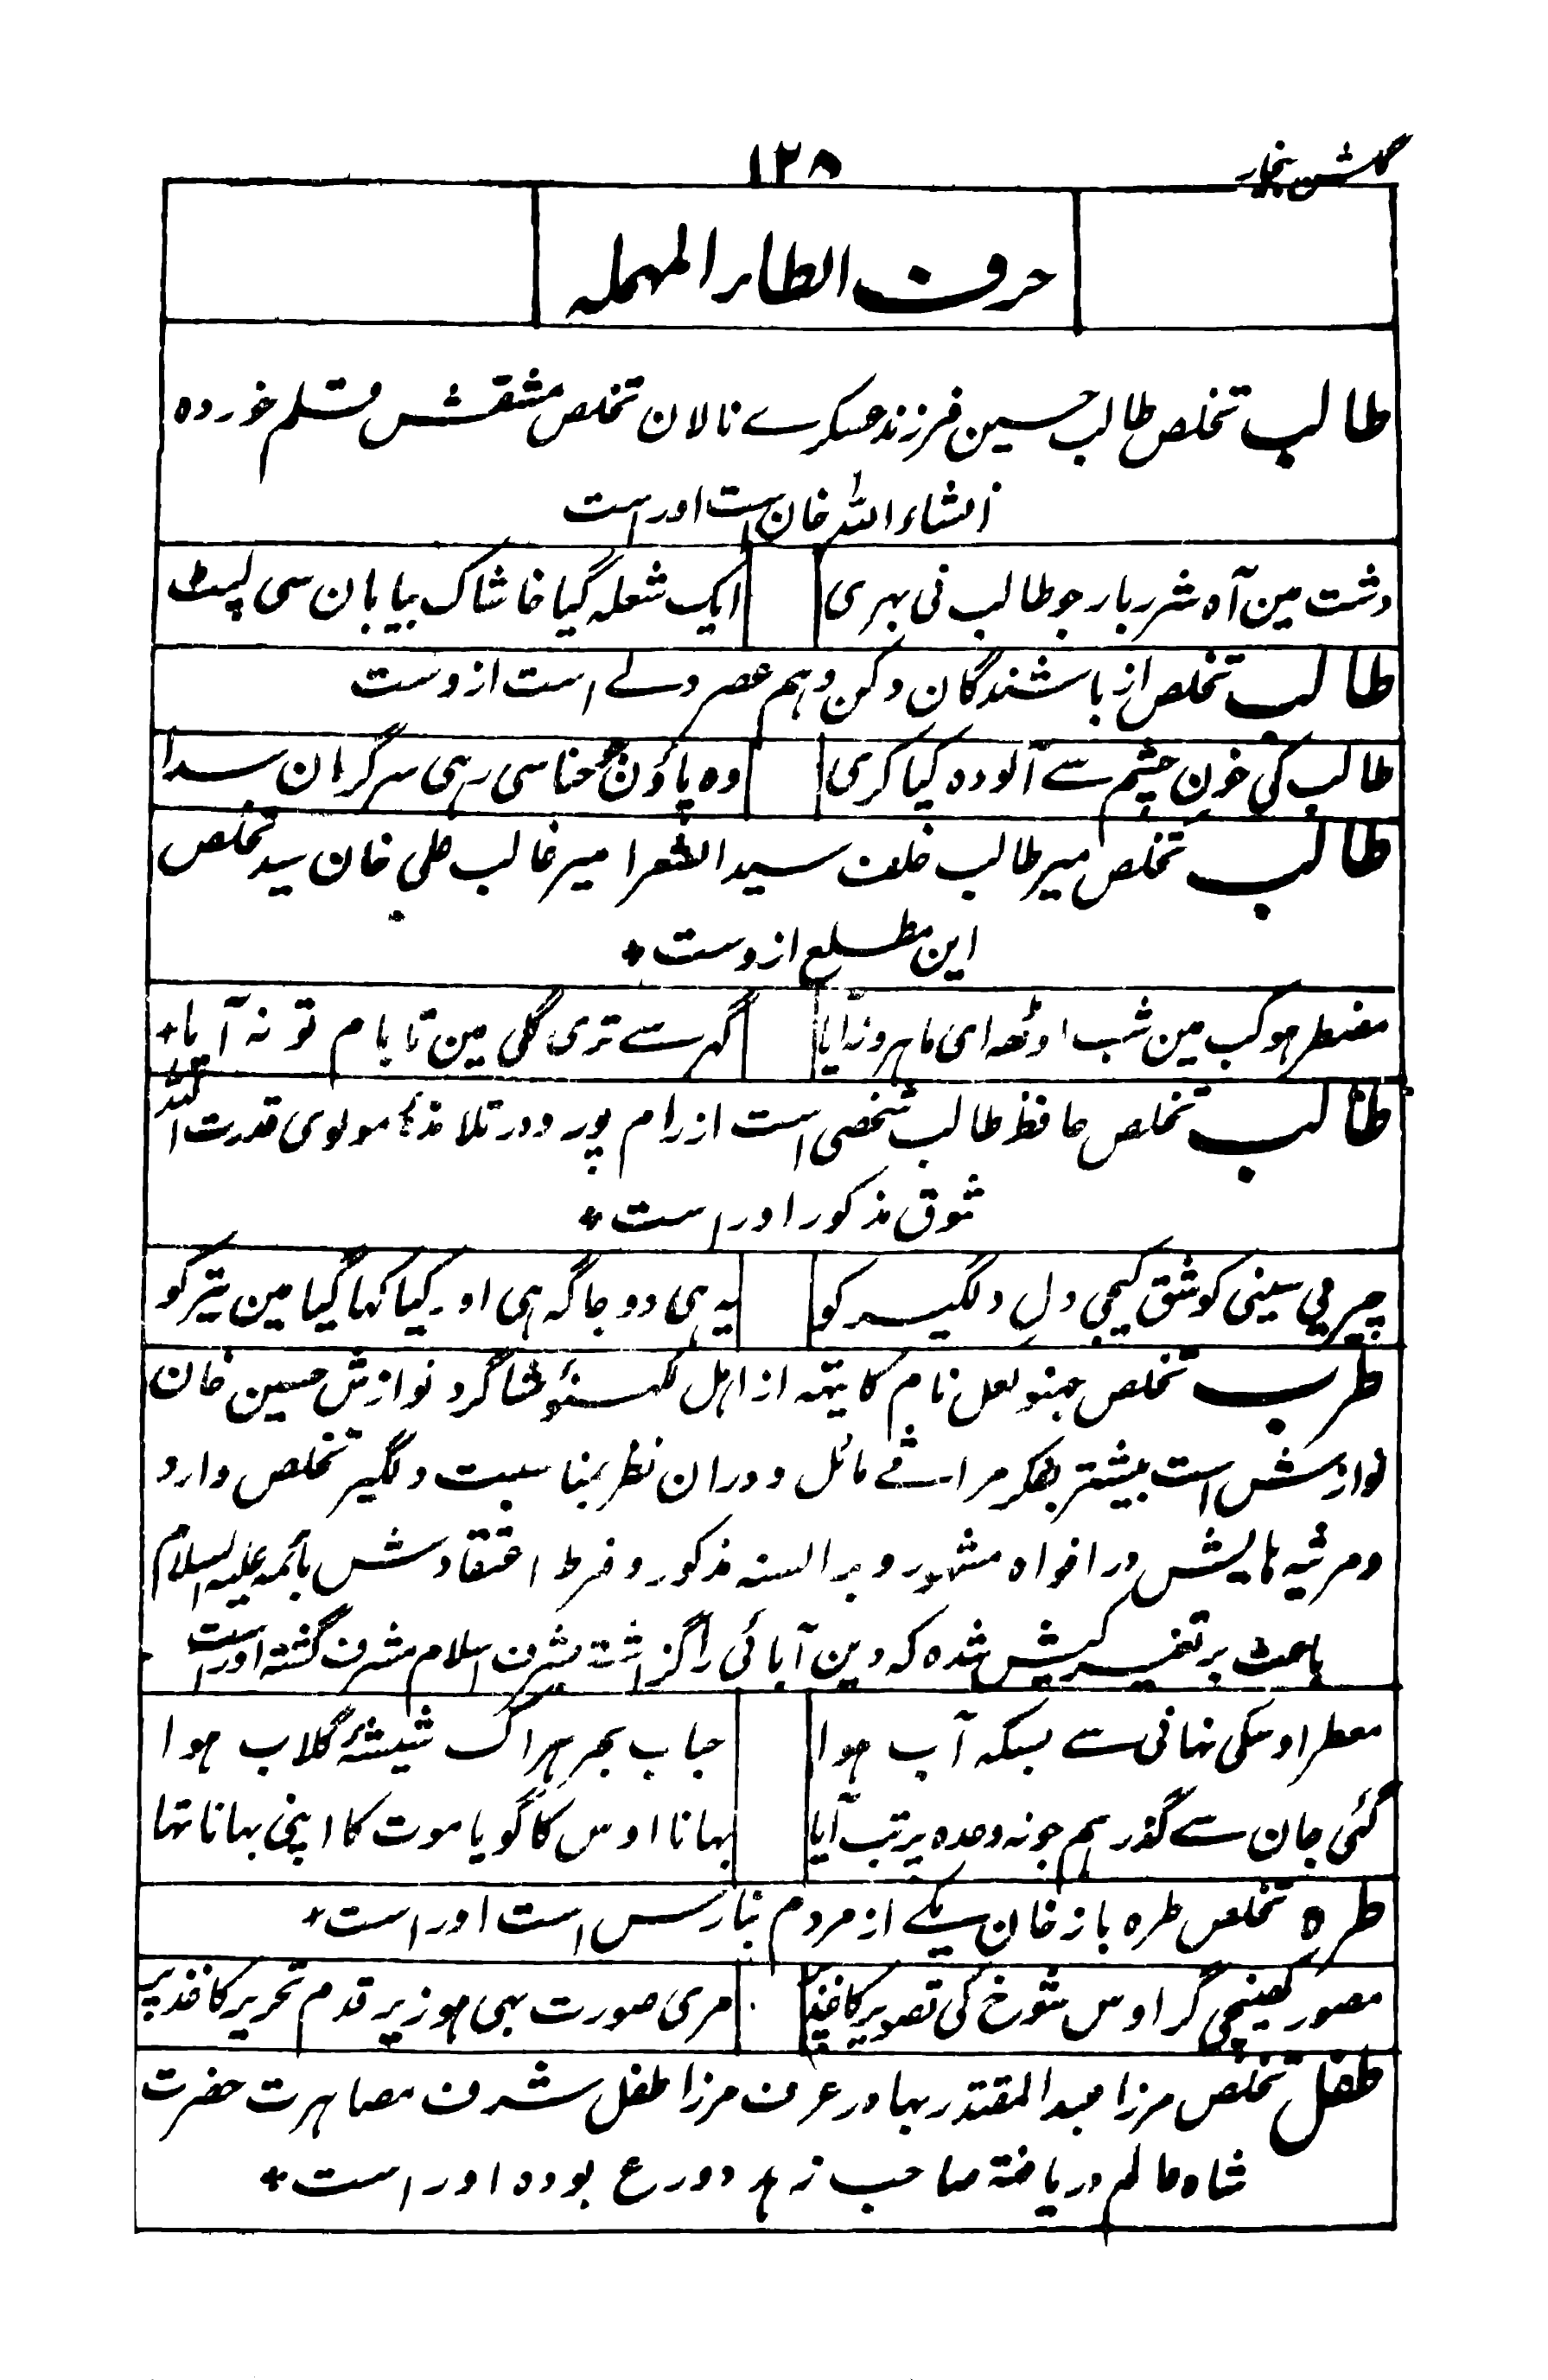 گلشن بیخار
۱۲۸
حرف الطاء المهمله
طالب تخلص طالب حسین فرزند عسکرے نالان تخلص مشقش قلم خورده
انشاء الله خان است اوراست
دشت مین آه شرر بار جو طالب نی بهری
ایک شعله گیا خاشاک بیابان سی لپٹ
طالب تخلص از باشندگان دکن و هم عصر ولے است ازوست
طالب کی خون چشم سے آلوده کیا کری
وه پاؤن جو حنا سی رہی سرگران سدا
طالب تخلص میر طالب خلف سید الشعرا میر غالب علی خان سید تخلص
این مطلع ازوست +
مضطر ہو کب مین شب اوٹھ ای ماہرو نہ آیا
گہر سے تری گلی مین تا بام تو نہ آیا +
طالب تخلص حافظ طالب شخصی است از رام پور و در تلامذۂ مولوی قدرت الله
شوق مذکور اوراست +
چیر یی سینی کو شق کیجی دل دلگیر کو
یہ ہی دو جاگہ ہی اور کیا کہا گیا مین تیر کو
طرب تخلص جهنو لعل نام کایتہ از اهل لکهنؤ شاگرد نوازش حسین خان
نوازش است بیشتر بفکر مراثے مائل و دران نظر بمناسبت دلگیر تخلص دارد
و مرثیه هایش در افواه مشهور و بر السنه مذکور و فرط اعتقادش بائمه علیه السلام
باعث بر تغیر کیش شده که دین آبائی را گزاشته بشرف اسلام مشرف گشته اوراست
معطر اوسکی نہانی سے بسکہ آب ہوا
حباب بحر ہر اک شیشۂ گلاب ہوا
گئی جان سے گذر ہم جو نہ وعده پر تب آیا
بہانا اوس کا گویا موت کا اپنی بہانا تہا
طره تخلص طره باز خان یکے از مردم بنارس است اوراست +
مصور کھینچی گر اوس شوخ کی تصویر کاغذ پر
مری صورت بہی ہو زیر قدم تحریر کاغذ پر
طفل تخلص مرزا عبد المقتدر بهادر عرف مرزا طفل شرف مصاهرت حضرت
شاه عالم دریافته صاحب زهد و ورع بوده اوراست +